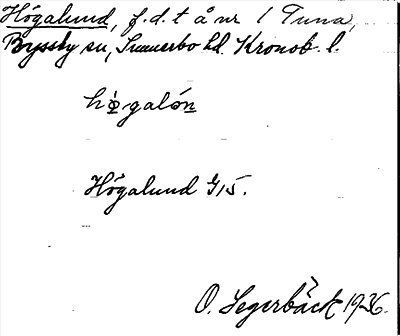 Högalund, f.d. t å nr 1 Tuna,
Ryssby sn, Sunnerbo hd. Kronob. l.
Högalund G15.
O. Segerbäck 1926.